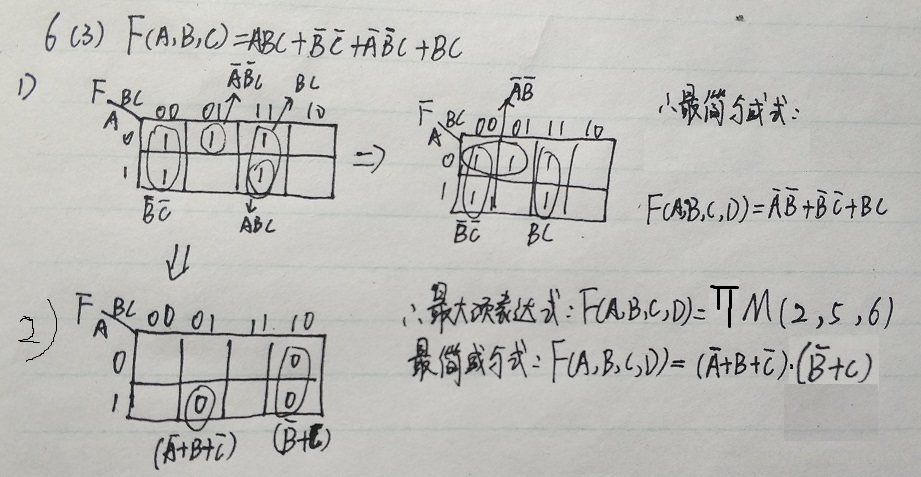 6(3) F(A,B,C)=ABC+B̄C̄+ĀB̄C+BC
1)
F
A BC 00 01 11 10
0 1 1 1
1 1 1
B̄C̄ ĀB̄C ABC BC
⇒
F
A BC 00 01 11 10
0 1 1 1
1 1 1
B̄C̄ BC ĀB̄
∴最简与或式:
F(A,B,C,D)=ĀB̄+B̄C̄+BC
⇓
2)
F
A BC 00 01 11 10
0 0
1 0 0
(Ā+B+C̄) (B̄+C)
∴最大项表达式:F(A,B,C,D)=∏M(2,5,6)
最简或与式:F(A,B,C,D)=(Ā+B+C̄)·(B̄+C)